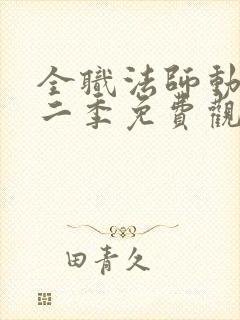 全職法師動
二季免費觀
田青久